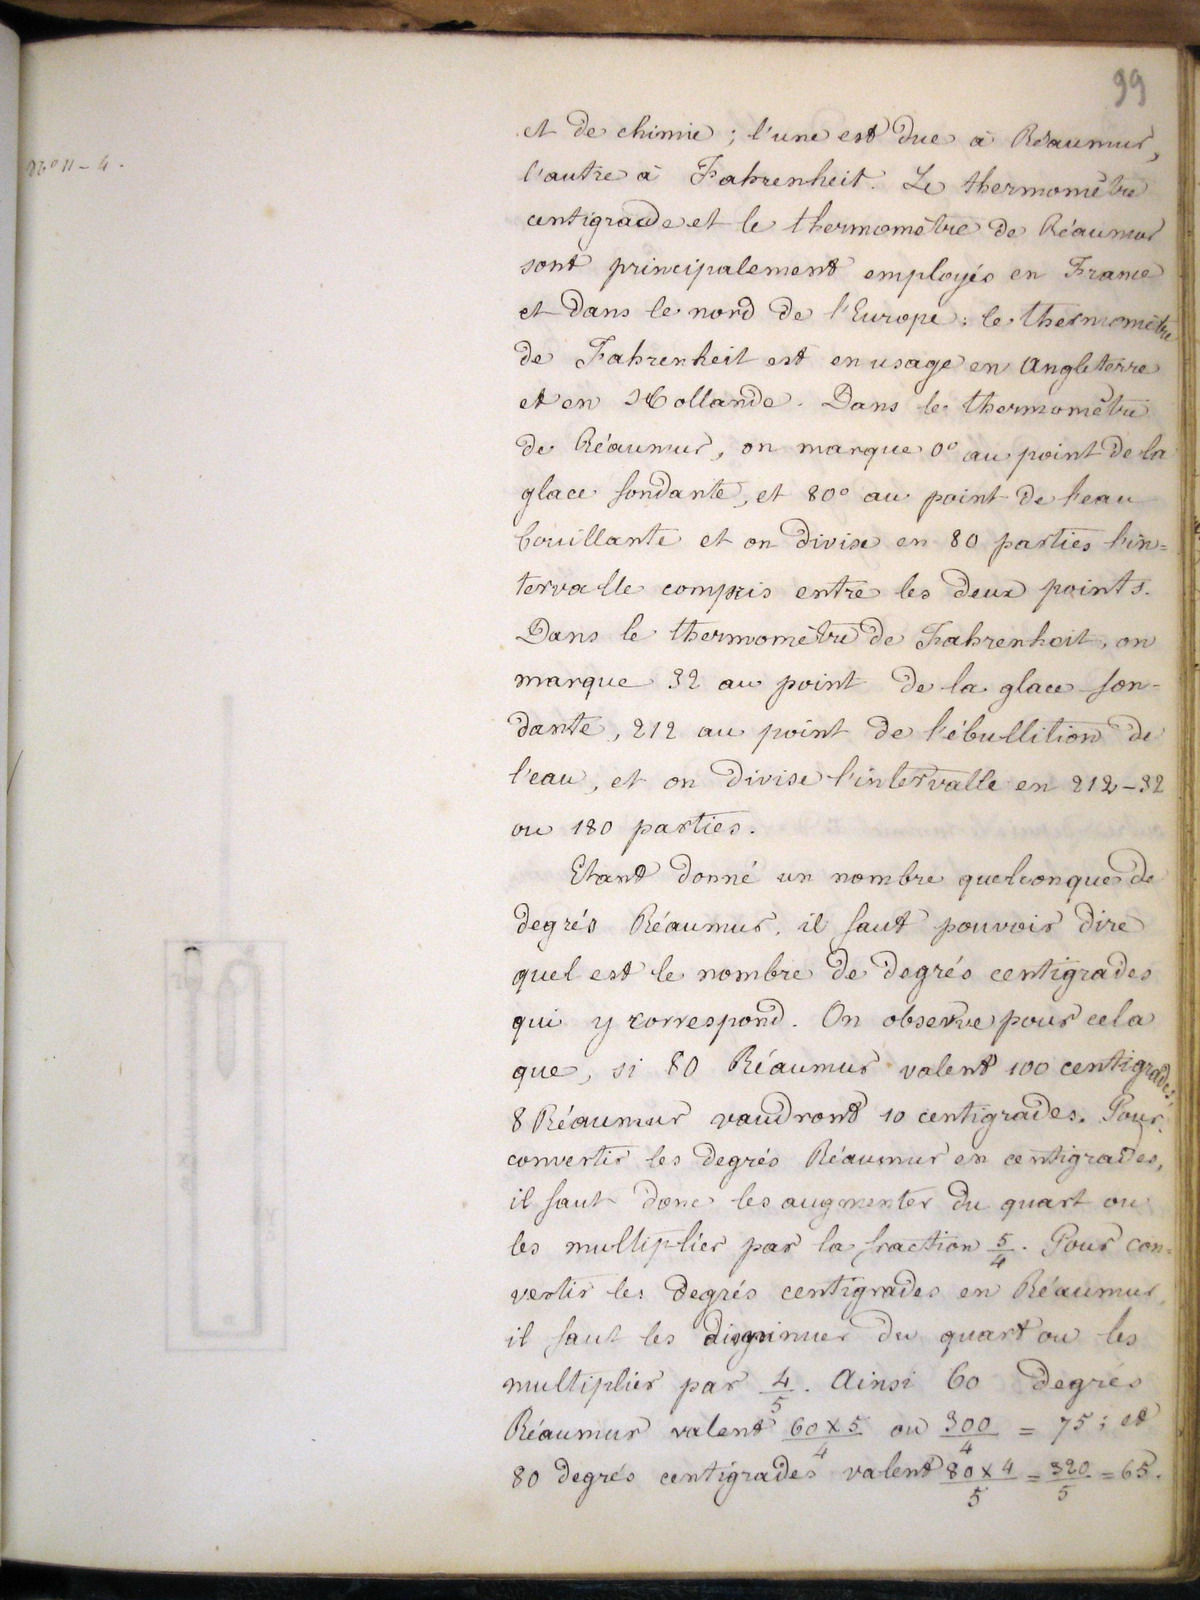 99
N° 11 - 4.
et de chimie ; l'une est due à Réaumur,
l'autre à Fahrenheit. Le thermomètre
centigrade et le thermomètre de Réaumur
sont principalement employés en France
et dans le nord de l'Europe ; le thermomètre
de Fahrenheit est en usage en Angleterre
et en Hollande. Dans le thermomètre
de Réaumur, on marque 0° au point de la
glace fondante, et 80° au point de l'eau
bouillante et on divise en 80 parties l'in=
tervalle compris entre les deux points.
Dans le thermomètre de Fahrenheit, on
marque 32 au point de la glace fon-
dante, 212 au point de l'ébullition de
l'eau, et on divise l'intervalle en 212-32
ou 180 parties.
Etant donné un nombre quelconque de
degrés Réaumur, il faut pouvoir dire
quel est le nombre de degrés centigrades
qui y correspond. On observe pour cela
que, si 80 Réaumur valent 100 centigrades,
8 Réaumur vaudront 10 centigrades. Pour
convertir les degrés Réaumur en centigrades,
il faut donc les augmenter du quart ou
les multiplier par la fraction 5/4. Pour con=
vertir les degrés centigrades en Réaumur,
il faut les diminuer du quart ou les
multiplier par 4/5. Ainsi 60 degrés
Réaumur valent 60 x 5/4 ou 300/4 = 75 ; et
80 degrés centigrades valent 80 x 4/5 = 320/5 = 65.